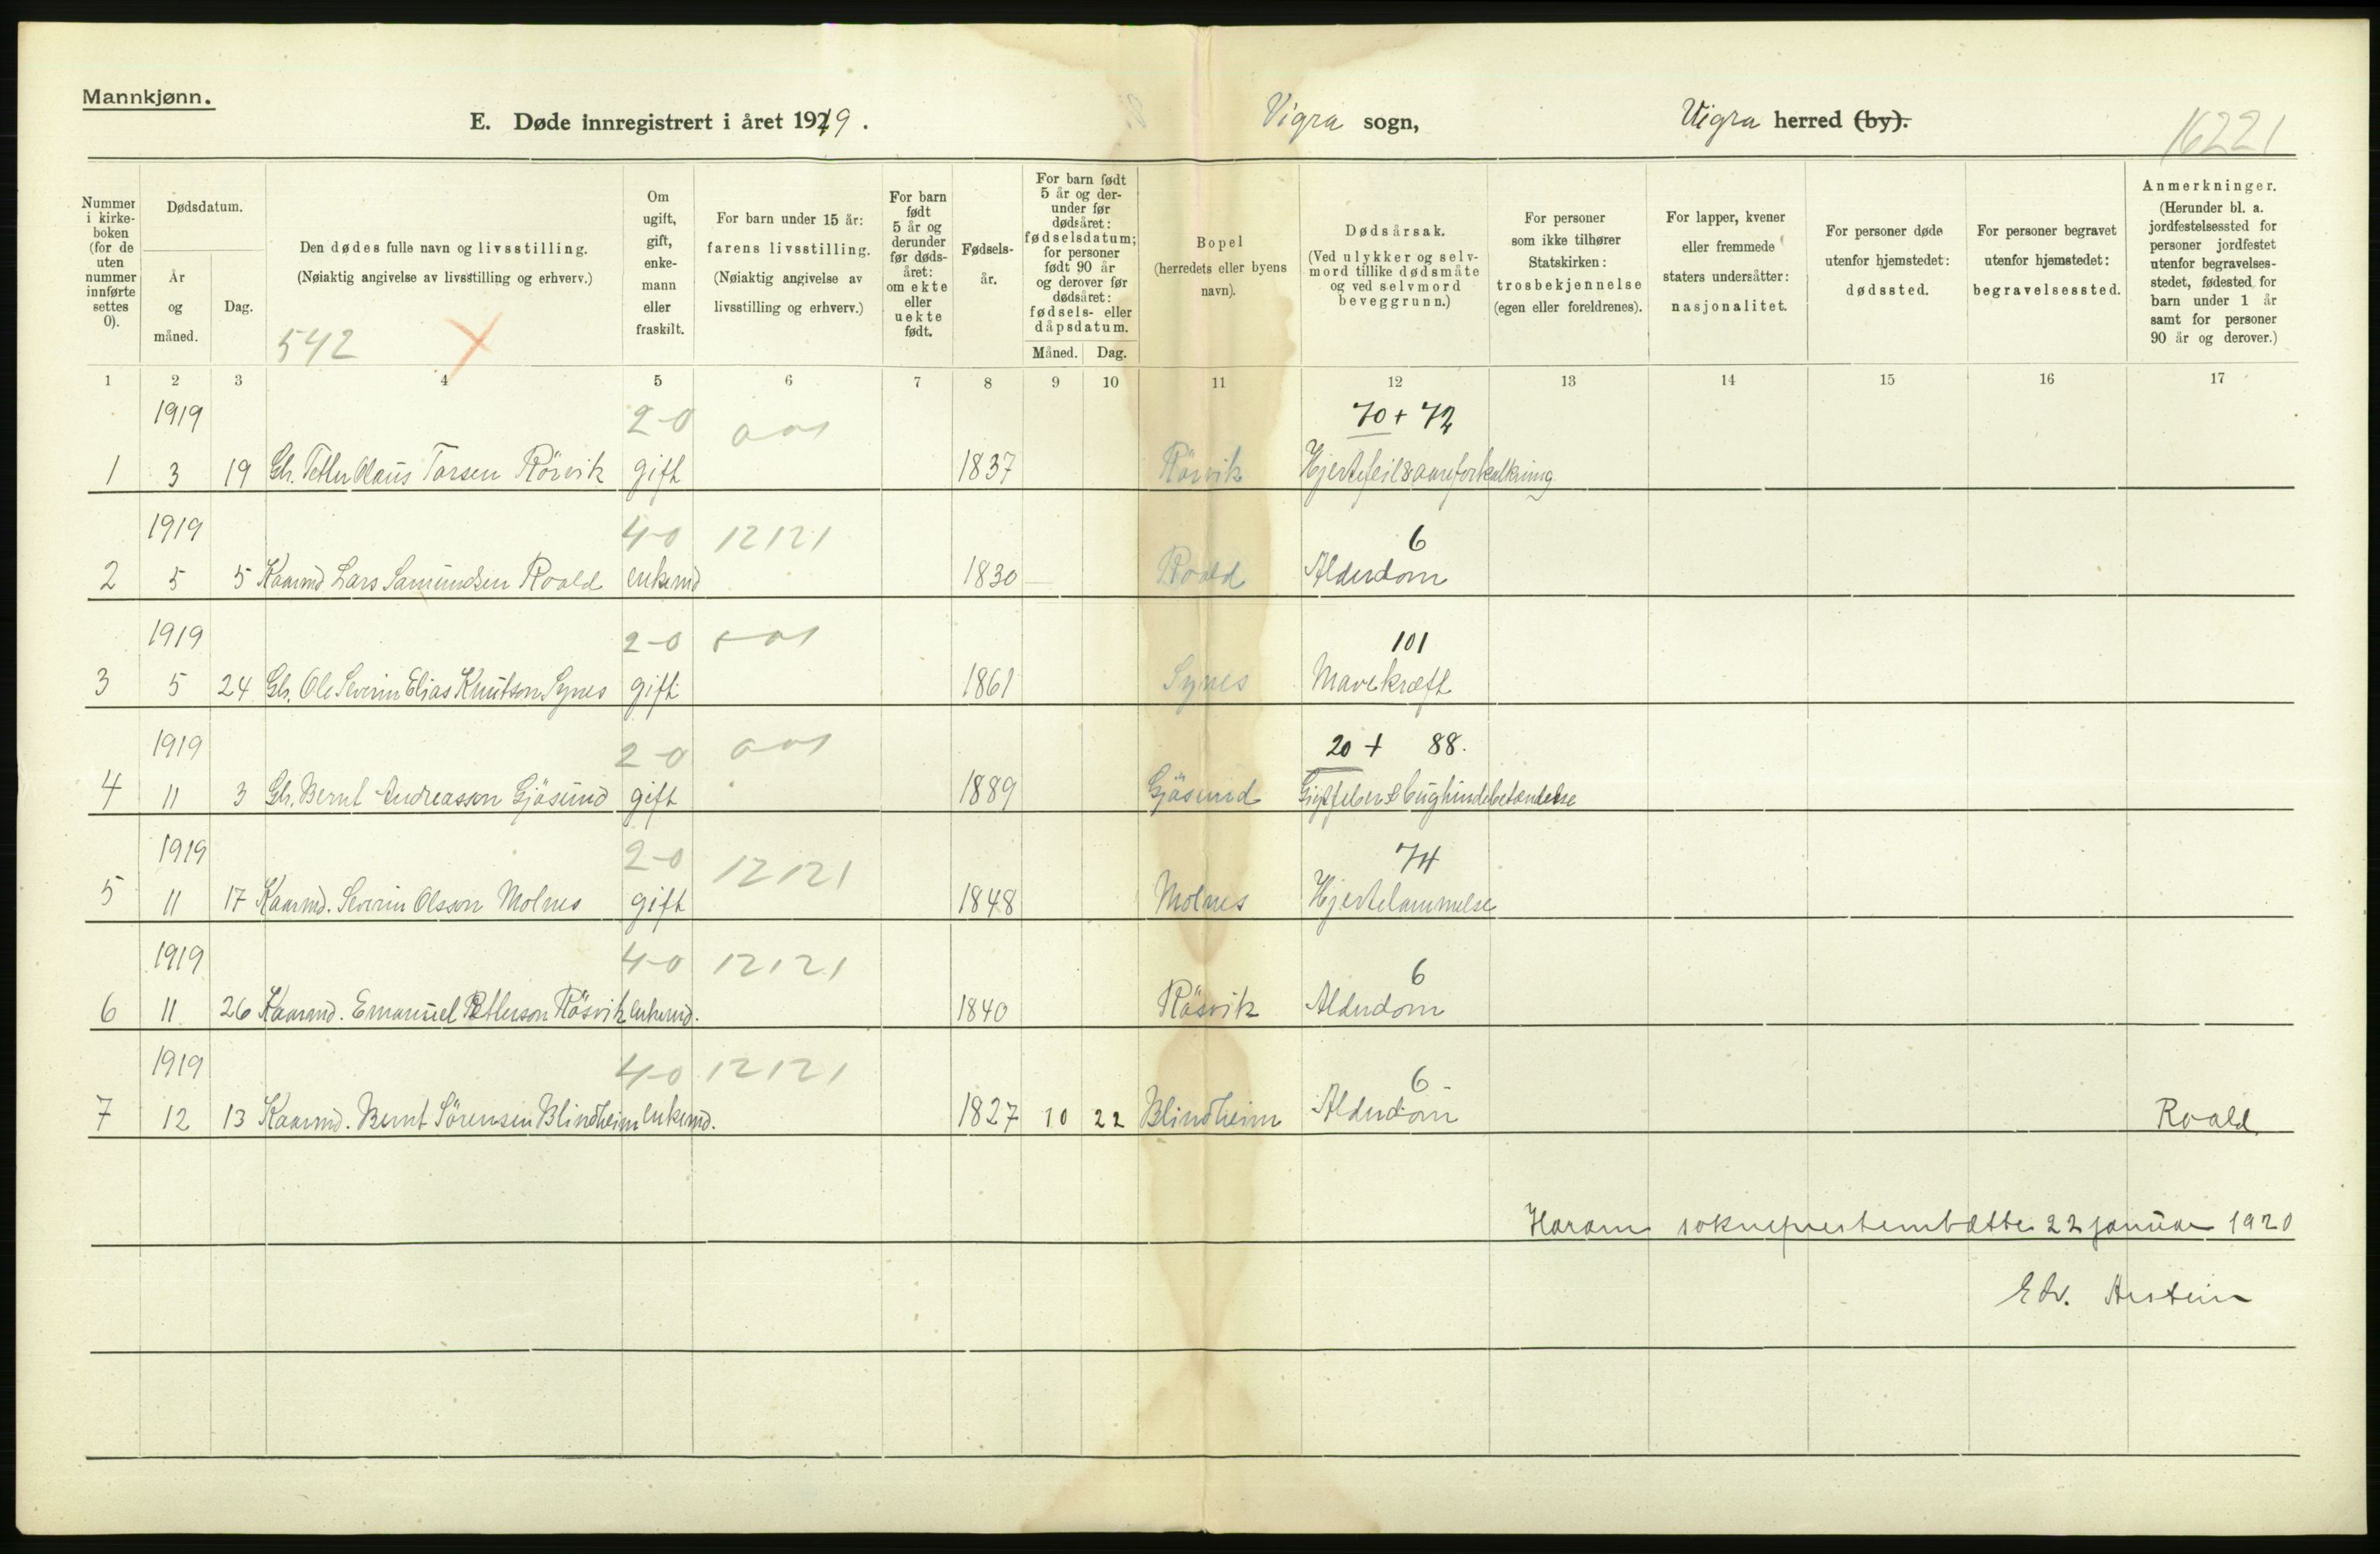 Mannkjønn.
E. Døde innregistrert i året 1919.
Vigra sogn,
Vigra herred (by).
16221
Nummer i kirke-boken (for de uten nummer innførte settes 0).
Dødsdatum.
År og måned.
Dag.
Den dødes fulle navn og livsstilling.
(Nøiaktig angivelse av livsstilling og erhverv.)
542
Om ugift, gift, enke-mann eller fraskilt.
For barn under 15 år:
farens livsstilling.
(Nøiaktig angivelse av livsstilling og erhverv.)
For barn født 5 år og derunder før døds-året: om ekte eller uekte født.
Fødsels-år.
For barn født 5 år og der-under før dødsåret: fødselsdatum; for personer født 90 år og derover før dødsåret: fødsels- eller dåpsdatum.
Måned.
Dag.
Bopel
(herredets eller byens navn).
Dødsårsak.
(Ved ulykker og selv-mord tillike dødsmåte og ved selvmord beveggrunn.)
For personer som ikke tilhører Statskirken: trosbekjennelse (egen eller foreldrenes).
For lapper, kvener eller fremmede staters undersåtter: nasjonalitet.
For personer døde utenfor hjemstedet: dødssted.
For personer begravet utenfor hjemstedet: begravelsessted.
Anmerkninger.
(Herunder bl. a. jordfestelsessted for personer jordfestet utenfor begravelses-stedet, fødested for barn under 1 år samt for personer 90 år og derover.)
1 2 3 4 5 6 7 8 9 10 11 12 13 14 15 16 17
1919 2-0 70 + 72
1 3 19 Gbr. Petter Olaus Larsen Rörvik gift 1837 Rörvik Hjertefeil & aareforkalkning
1919 4-0 12121 6
2 5 5 Kaarmd Lars Samundsen Roald enkemd 1830 Roald Alderdom
1919 2-0 101
3 5 24 Gbr. Ole Severin Elias Knutson Synes gift 1861 Synes Mavekræft
1919 2-0 20 + 88.
4 11 3 Gbr. Bernt Andreasson Gjösund gift 1889 Gjösund Gigtfeber & bughindebetændelse
1919 2-0 12121 74
5 11 17 Kaarmd. Severin Olsson Molnes gift 1848 Molnes Hjertelammelse
1919 4-0 12121 6
6 11 26 Kaarmd. Emanuel Petterson Rösvik enkemd. 1840 Rösvik Alderdom
1919 4-0 12121 6
7 12 13 Kaarmd. Bernt Sörensen Blindheim enkemd. 1827 10 22 Blindheim Alderdom Roald
Haram sokneprestembætte 22 januar 1920
Edv.